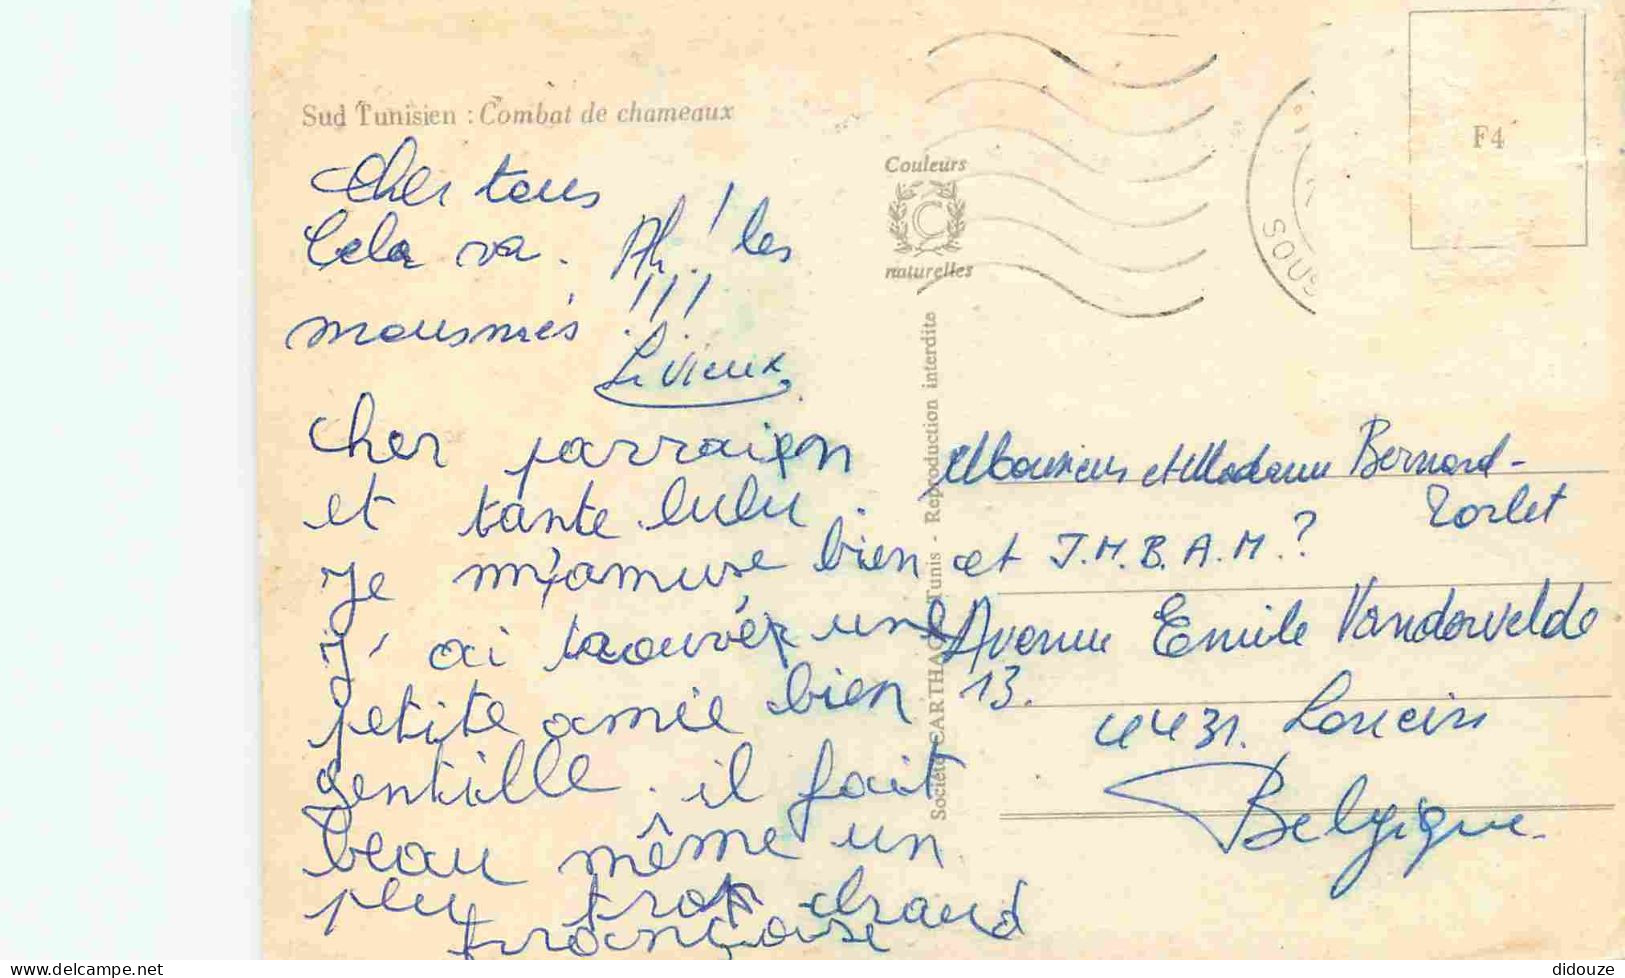 Sud Tunisien : Combat de chameaux
Cher tous
Cela va. Ah ! les
mousmés !!!
Le Vieux
Cher parraien
et tante lulu.
Je m'amuse bien
j'ai trouvér une
petite amie bien
gentille. il fait
beau même un
peu trop chaud
françoise
Couleurs
naturelles
Société CARTHAGE Tunis - Reproduction interdite
SOUS
F4
Monsieur et Madame Bernard-
Torlet
et J.M.B.A.M.?
Avenue Emile Vandervelde
13.
4431. Loncin
Belgique.
didouze